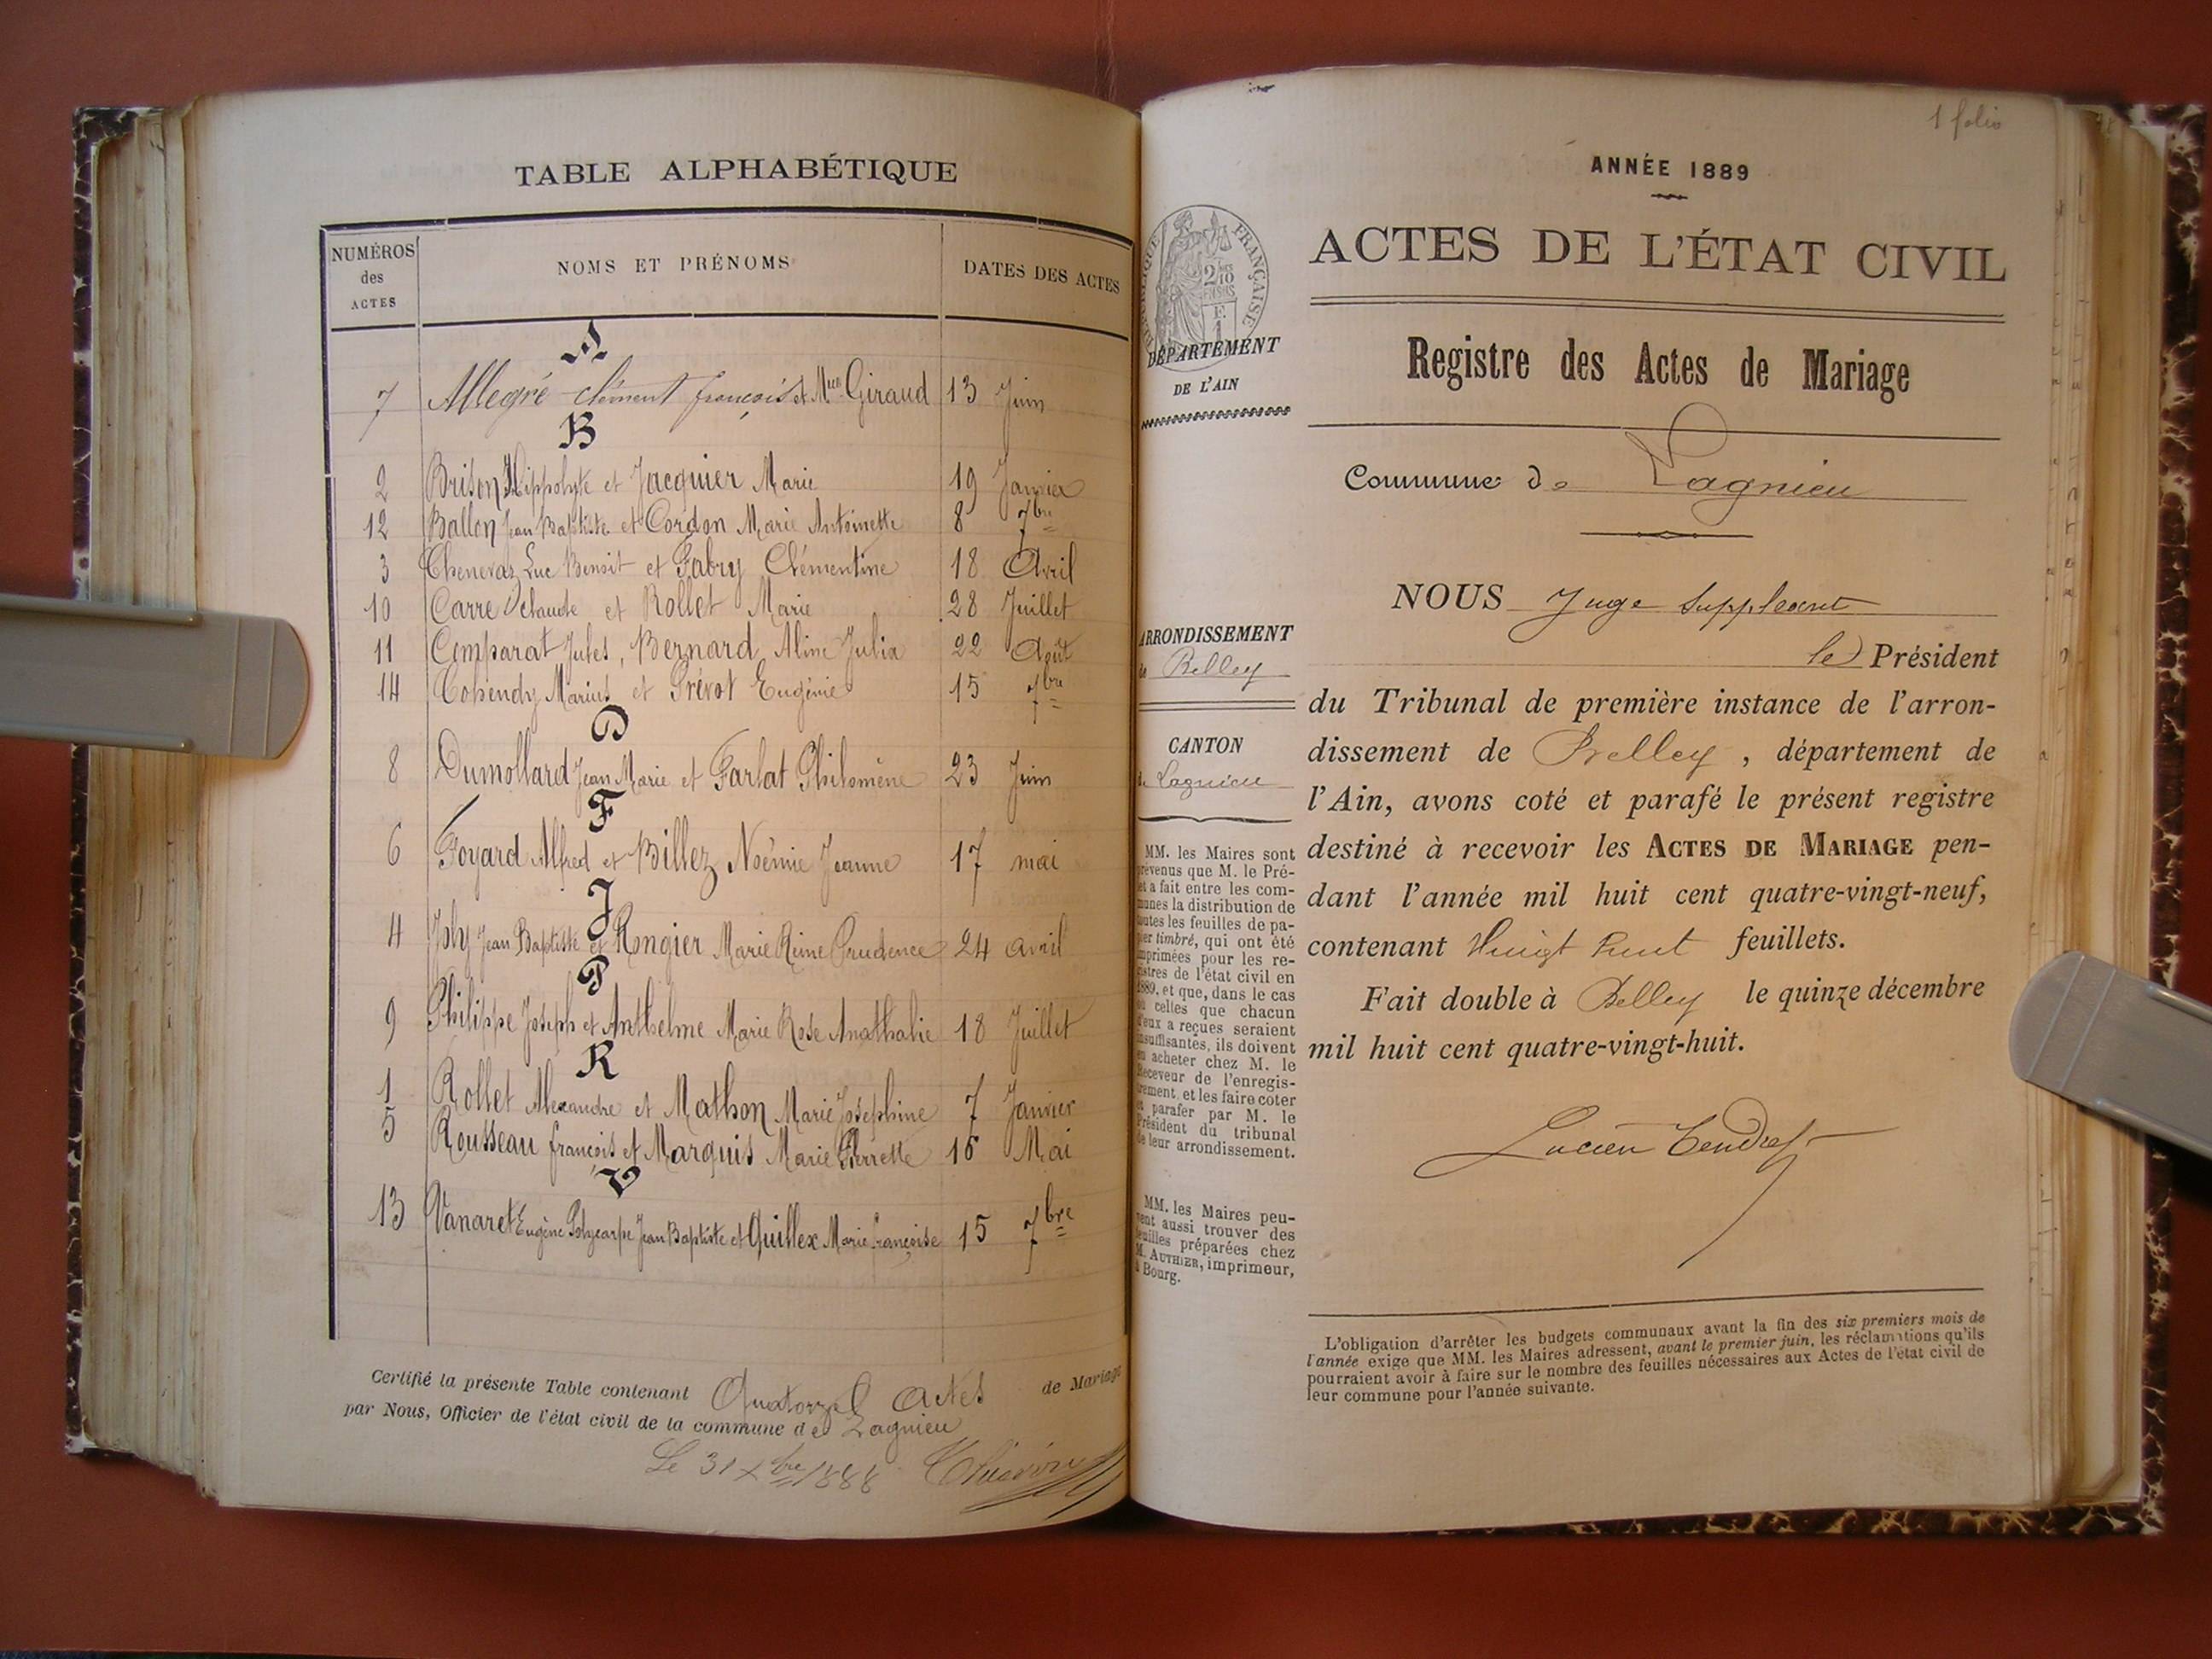 TABLE ALPHABÉTIQUE
NUMÉROS des ACTES
NOMS ET PRÉNOMS
DATES DES ACTES
A
7 Allegré clément françois et Mlle Giraud 13 Juin
B
2 Brison Hippolyte et Jacquier Marie 19 Janvier
12 Ballon Jean Baptiste et Cordon Marie Antoinette 8 7bre
3 Chenevaz Luc Benoit et Fabry Clémentine 18 Avril
10 Carre Claude et Rollet Marie 28 Juillet
11 Comparat Jules, Bernard Aline Julia 22 Août
14 Cohendy Marius et Prévot Eugénie 15 7bre
D
8 Dumollard Jean Marie et Farlat Philomène 23 Juin
F
6 Foyard Alfred et Billez Noémie Jeanne 17 mai
J
4 Joly Jean Baptiste et Rongier Marie Reine Prudence 24 avril
P
9 Philippe Joseph et Anthelme Marie Rose Anathalie 18 Juillet
R
1 Rollet Alexandre et Mathon Marie Joséphine 7 Janvier
5 Rousseau françois et Marquis Marie Pierrette 16 Mai
V
13 Vanaret Eugène Polycarpe Jean Baptiste et Quillex Marie Françoise 15 7bre
Certifié la présente Table contenant Quatorze actes de Mariage
par Nous, Officier de l'état civil de la commune de Lagnieu
Le 31 Xbre 1888
1 folio
ANNÉE 1889
ACTES DE L'ÉTAT CIVIL
RÉPUBLIQUE FRANÇAISE
2/10 EN SUS
F. 1
DÉPARTEMENT
DE L'AIN
Registre des Actes de Mariage
Commune de Lagnieu
ARRONDISSEMENT
de Belley
CANTON
de Lagnieu
MM. les Maires sont
prévenus que M. le Pré-
fet a fait entre les com-
munes la distribution de
toutes les feuilles de pa-
pier timbré, qui ont été
imprimées pour les re-
gistres de l'état civil en
1889, et que, dans le cas
où celles que chacun
d'eux a reçues seraient
insuffisantes, ils doivent
en acheter chez M. le
Receveur de l'enregis-
trement, et les faire coter
et parafer par M. le
Président du tribunal
de leur arrondissement.
MM. les Maires peu-
vent aussi trouver des
feuilles préparées chez
M. AUTHIER, imprimeur,
à Bourg.
NOUS Juge Suppleant
le Président
du Tribunal de première instance de l'arron-
dissement de Belley, département de
l'Ain, avons coté et parafé le présent registre
destiné à recevoir les ACTES DE MARIAGE pen-
dant l'année mil huit cent quatre-vingt-neuf,
contenant Vingt huit feuillets.
Fait double à Belley le quinze décembre
mil huit cent quatre-vingt-huit.
Lucien Tendret
L'obligation d'arrêter les budgets communaux avant la fin des six premiers mois de
l'année exige que MM. les Maires adressent, avant le premier juin, les réclamations qu'ils
pourraient avoir à faire sur le nombre des feuilles nécessaires aux Actes de l'état civil de
leur commune pour l'année suivante.